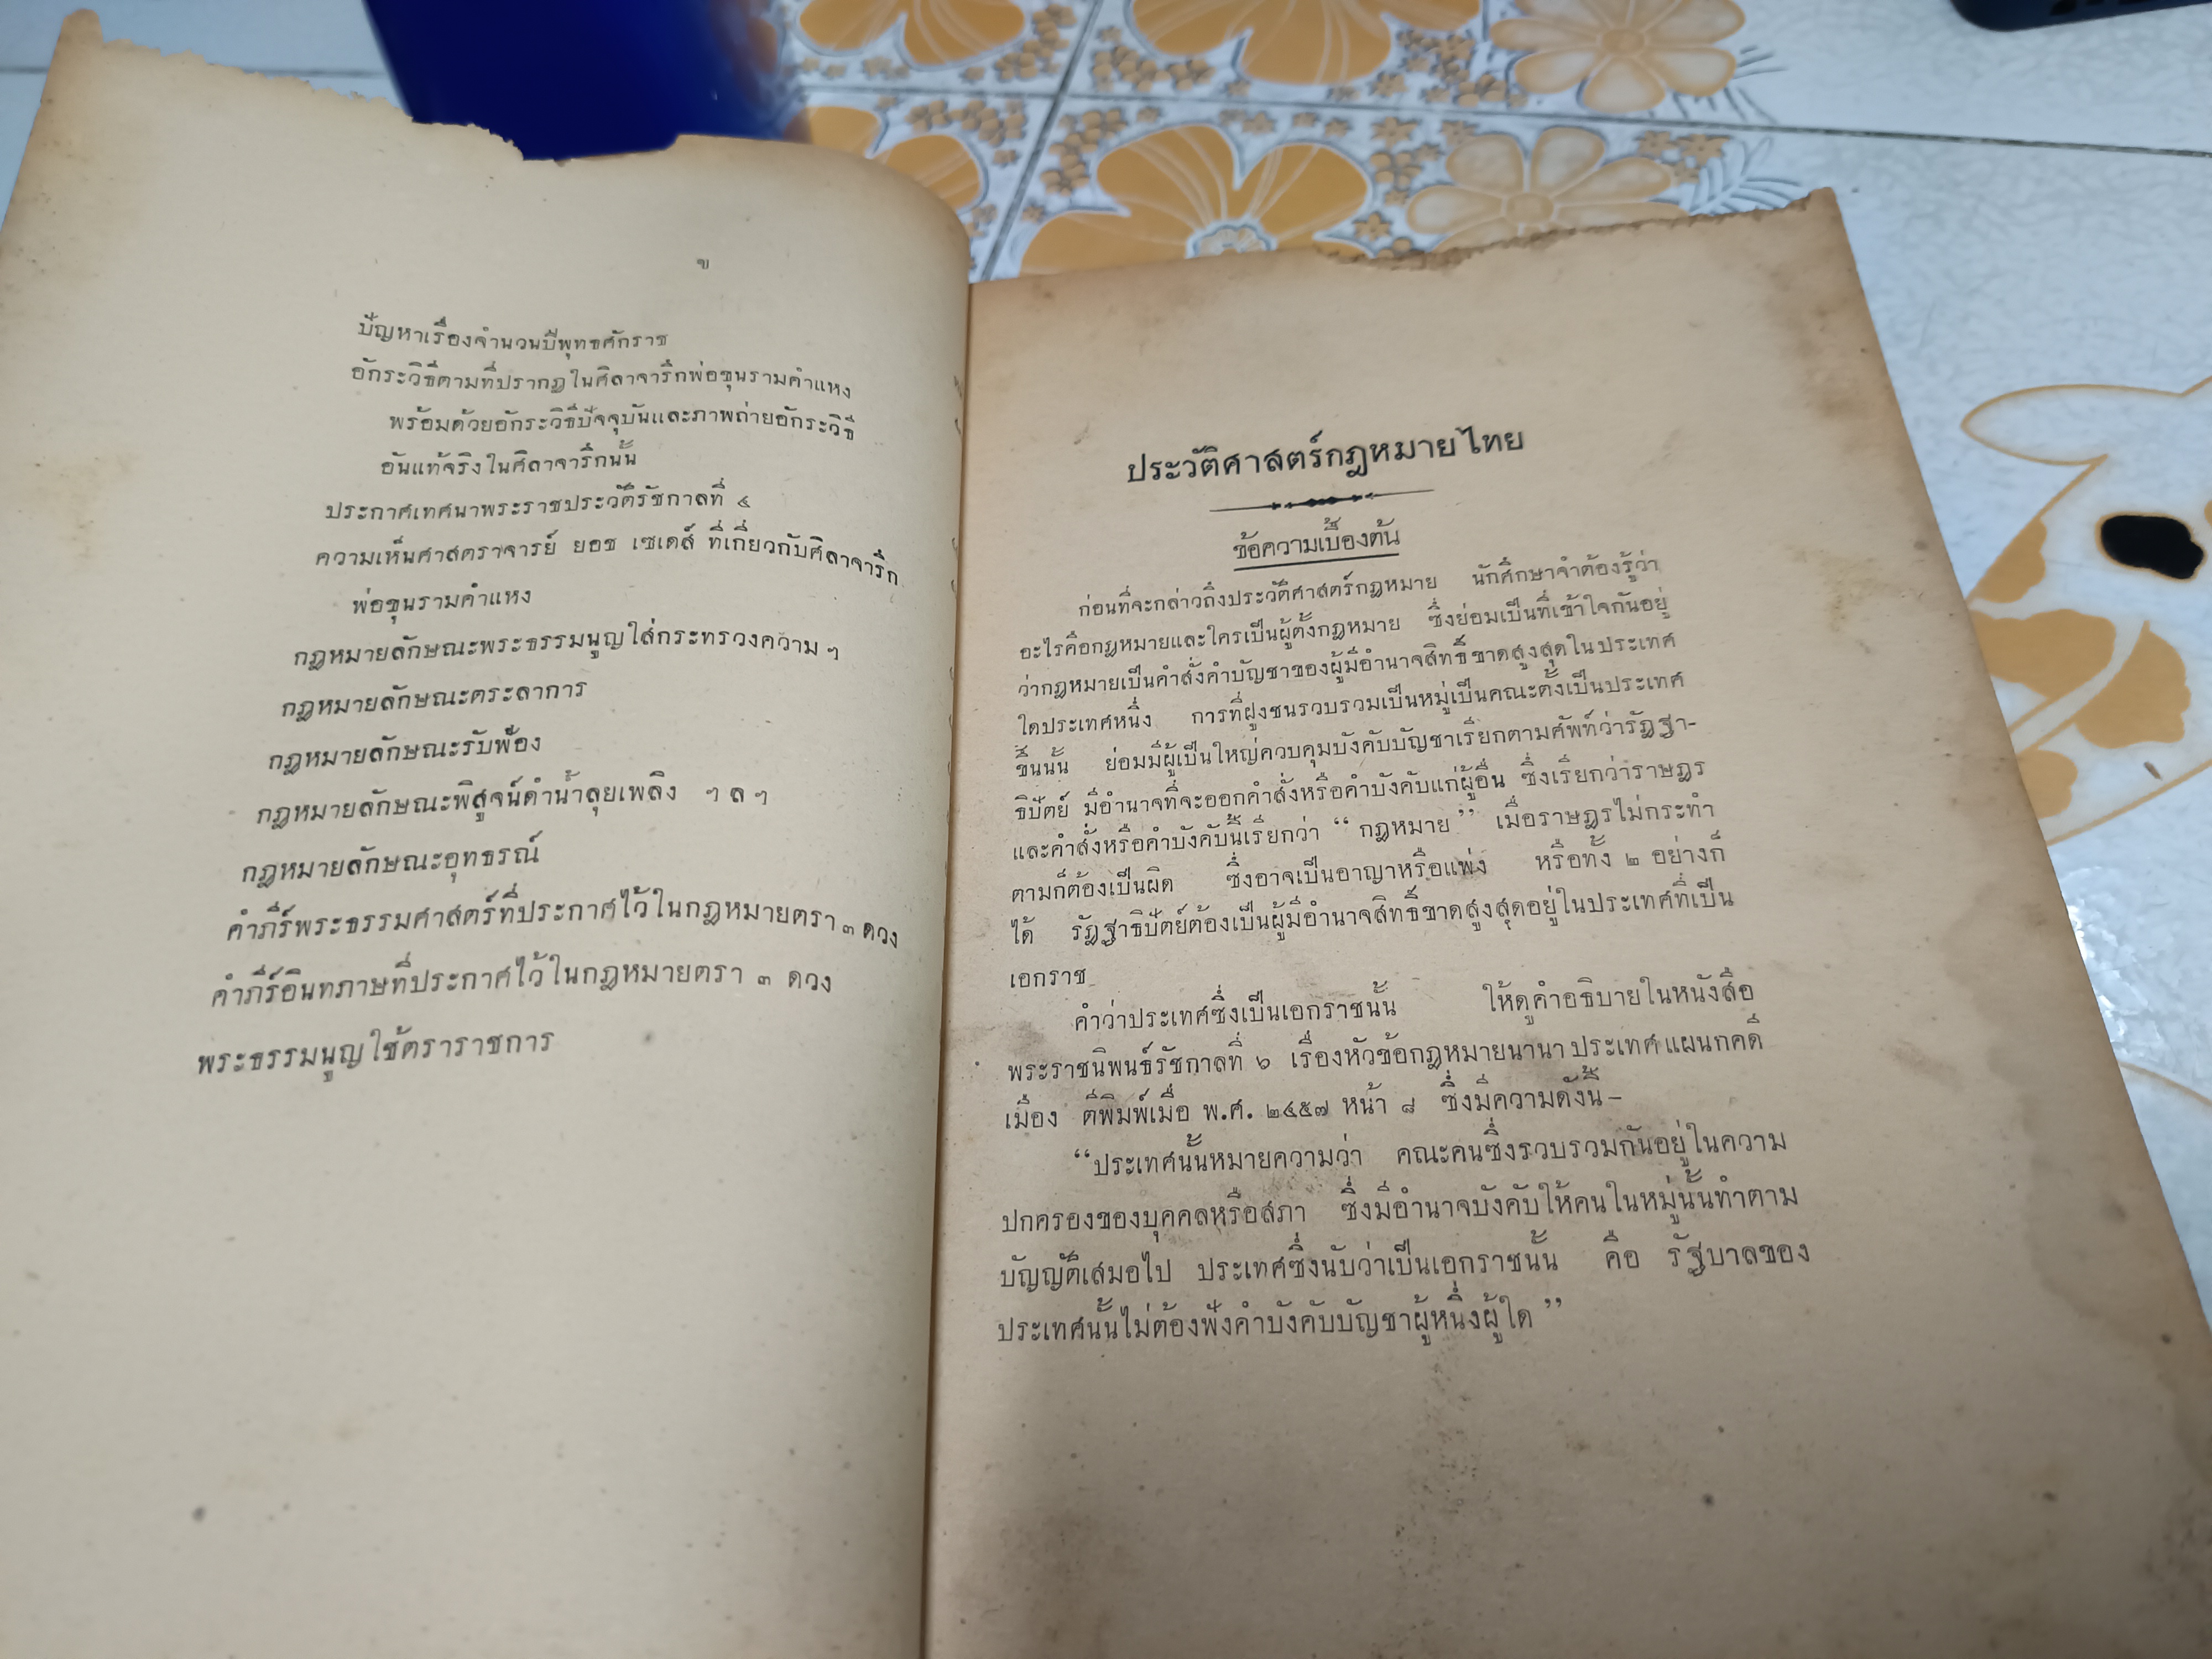 ข
ปัญหาเรื่องจำนวนปีพุทธศักราช
อักระวิธีตามที่ปรากฏในศิลาจารึกพ่อขุนรามคำแหง
พร้อมด้วยอักระวิธีปัจจุบันและภาพถ่ายอักระวิธี
อันแท้จริงในศิลาจารึกนั้น
ประกาศเทศนาพระราชประวัติรัชกาลที่ ๔
ความเห็นศาสตราจารย์ ยอช เซเดส์ ที่เกี่ยวกับศิลาจารึก
พ่อขุนรามคำแหง
กฎหมายลักษณะพระธรรมนูญใส่กระทรวงความ ๆ
กฎหมายลักษณะตระลาการ
กฎหมายลักษณะรับฟ้อง
กฎหมายลักษณะพิสูจน์ดำน้ำลุยเพลิง ๆ ล ๆ
กฎหมายลักษณะอุทธรณ์
คำภีร์พระธรรมศาสตร์ที่ประกาศไว้ในกฎหมายตรา ๓ ดวง
คำภีร์อินทภาษที่ประกาศไว้ในกฎหมายตรา ๓ ดวง
พระธรรมนูญใช้ตราราชการ
ประวัติศาสตร์กฎหมายไทย
ข้อความเบื้องต้น
ก่อนที่จะกล่าวถึงประวัติศาสตร์กฎหมาย นักศึกษาจำต้องรู้ว่า
อะไรคือกฎหมายและใครเป็นผู้ตั้งกฎหมาย ซึ่งย่อมเป็นที่เข้าใจกันอยู่
ว่ากฎหมายเป็นคำสั่งคำบัญชาของผู้มีอำนาจสิทธิ์ขาดสูงสุดในประเทศ
ใดประเทศหนึ่ง การที่ฝูงชนรวบรวมเป็นหมู่เป็นคณะตั้งเป็นประเทศ
ขึ้นนั้น ย่อมมีผู้เป็นใหญ่ควบคุมบังคับบัญชาเรียกตามศัพท์ว่ารัฎฐา-
ธิปัตย์ มีอำนาจที่จะออกคำสั่งหรือคำบังคับแก่ผู้อื่น ซึ่งเรียกว่าราษฎร
และคำสั่งหรือคำบังคับนี้เรียกว่า “ กฎหมาย ” เมื่อราษฎรไม่กระทำ
ตามก็ต้องเป็นผิด ซึ่งอาจเป็นอาญาหรือแพ่ง หรือทั้ง ๒ อย่างก็
ได้ รัฎฐาธิปัตย์ต้องเป็นผู้มีอำนาจสิทธิ์ขาดสูงสุดอยู่ในประเทศที่เป็น
เอกราช
คำว่าประเทศซึ่งเป็นเอกราชนั้น ให้ดูคำอธิบายในหนังสือ
พระราชนิพนธ์รัชกาลที่ ๖ เรื่องหัวข้อกฎหมายนานาประเทศ แผนกคดี
เมือง ตีพิมพ์เมื่อ พ.ศ. ๒๔๕๗ หน้า ๘ ซึ่งมีความดังนี้ –
“ประเทศนั้นหมายความว่า คณะคนซึ่งรวบรวมกันอยู่ในความ
ปกครองของบุคคลหรือสภา ซึ่งมีอำนาจบังคับให้คนในหมู่นั้นทำตาม
บัญญัติเสมอไป ประเทศซึ่งนับว่าเป็นเอกราชนั้น คือ รัฐบาลของ
ประเทศนั้นไม่ต้องฟังคำบังคับบัญชาผู้หนึ่งผู้ใด ”